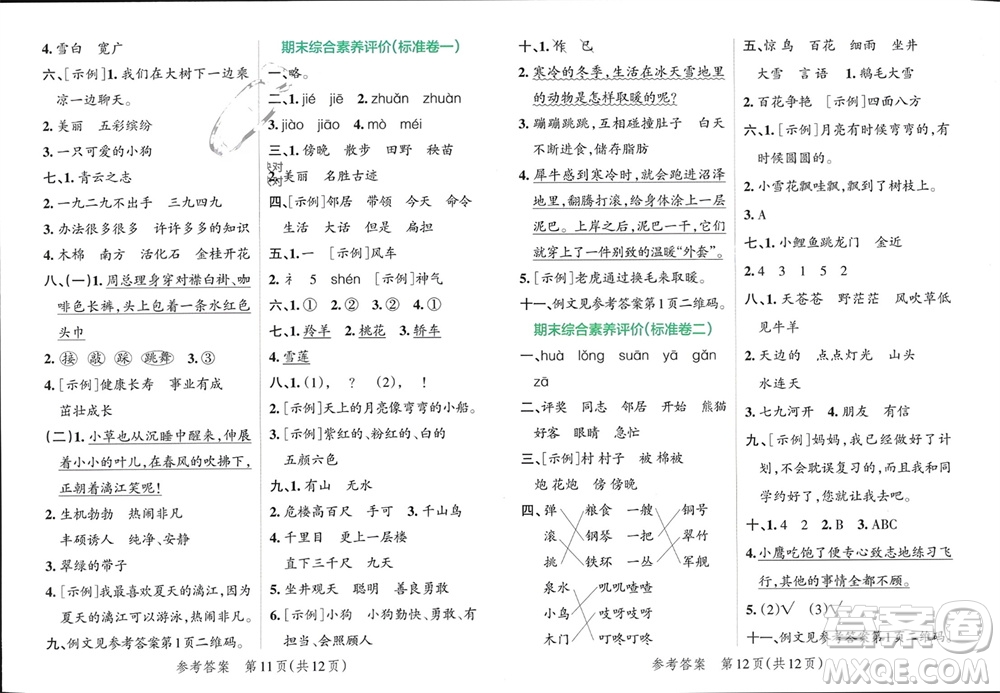 4. 雪白 宽广
六、[示例]1. 我们在大树下一边乘
凉一边聊天。
2. 美丽 五彩缤纷
3. 一只可爱的小狗
七、1. 青云之志
2. 一九二九不出手 三九四九
3. 办法很多很多 许许多多的知识
4. 木棉 南方 活化石 金桂开花
八、(一)1. 周总理身穿对襟白褂、咖
啡色长裤,头上包着一条水红色
头巾
2. 接 敲 踩 跳舞 3. ③
4. [示例]健康长寿 事业有成
茁壮成长
(二)1. 小草也从沉睡中醒来,伸展
着小小的叶儿,在春风的吹拂下,
正朝着漓江笑呢!
2. 生机勃勃 热闹非凡
丰硕诱人 纯净、安静
3. 翠绿的带子
4. [示例]我最喜欢夏天的漓江,因
为夏天的漓江可以游泳,非常热闹。
九、例文见参考答案第1页二维码。
参考答案 第11页(共12页)
期末综合素养评价(标准卷一)
一、略。
二、1. jié jiē 2. zhuǎn zhuàn
3. jiào jiāo 4. mò méi
三、1. 傍晚 散步 田野 秧苗
2. 美丽 名胜古迹
四、[示例]邻居 带领 今天 命令
生活 大话 但是 扁担
五、1. [示例]风车
2. 礻 5 shén [示例]神气
六、1. ① 2. ② 3. ② 4. ①
七、1. 羚羊 2. 桃花 3. 轿车
4. 雪莲
八、1. (1), ? (2), !
2. [示例]天上的月亮像弯弯的小船。
3. [示例]紫红的、粉红的、白的
五颜六色
九、1. 有山 无水
2. 危楼高百尺 手可 3. 千山鸟
4. 千里目 更上一层楼
直下三千尺
5. 坐井观天 聪明 善良勇敢
6. [示例]小狗 小狗勤快、勇敢、有
担当、会照顾人。
十、1. 作 已
2. 寒冷的冬季,生活在冰天雪地里
的动物是怎样取暖的呢?
3. 蹦蹦跳跳,互相碰撞肚子 白天
不断进食,储存脂肪
4. 犀牛感到寒冷时,就会跑进沼泽
地里,翻腾打滚,给身体涂上一层
泥巴。上岸后过一会儿,泥巴干了,
就穿上了一件别致的温暖“外套”。
5. [示例]老虎通过换毛来取暖。
十一、例文见参考答案第1页二维码。
期末综合素养评价(标准卷二)
一、huà lǒng suān yā gǎn
zā
二、评奖 同志 邻居 开始 熊猫
好客 眼睛 急忙
三、[示例]村 村子 被 棉被
炮 花炮 傍 傍晚
四、弹 粮食 一艘 钢号
滚 钢琴 一把 翠竹
挑 铁环 一丛 军舰
泉水 叽叽喳喳
小鸟 吱呀吱呀
木门 叮咚叮咚
五、惊鸟 百花 细雨 坐井
大雪 言语 1. 鹅毛大雪
2. 百花争艳 [示例]四面八方
六、1. [示例]月亮有时候弯弯的,有
时候圆圆的。
2. 小雪花飘哇飘,飘到了树枝上。
3. A
七、1. 小鲤鱼跳龙门 金近
2. 4 3 1 5 2
八、1. 天苍苍 野茫茫 风吹草低
见牛羊
2. 天边的 点点灯光 山头
水连天
3. 七九河开 4. 朋友 有信
九、[示例]妈妈,我已经做好了计
划,不会耽误复习的,而且同
学约好了,我去吧。
十、1. 4 2 2. B 3. ABC
4. 小鹰吃饱了便专心致志地练习飞
行,其他的事情全都不顾。
5. (2)√ (3)√
十一、例文见参考答案第1页二维码。
参考答案 第12页(共12页)
答案圈
MXQE.COM